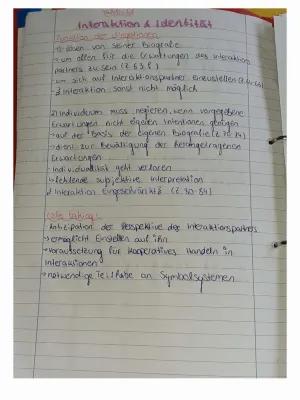 Interaktion & Identität
1) lösen von seiner Biografie
um allen für die Erwartungen des Interaktions
partners zu sein
um sich auf Interaktionspartner einzustellen
Interaktion sonst nicht möglich
2) Individuum muss negieren, wenn vorgegebene
Erwartungen nicht eigenen Intentionen genügen
auf der Basis der eigenen Biografie
dient zur Bewältigung der herangetragenen
Erwartungen
Individualität geht verloren
fehlende subjektive Interpretation
Interaktion eingeschränkt (Z. 30-84)
Role taking:
Antizipation der Perspektive des Interaktionspartners
ermöglicht Einstellen auf ihn
Voraussetzung für kooperatives Handeln in
Interaktionen
notwendige Teilhabe an Symbolsystemen